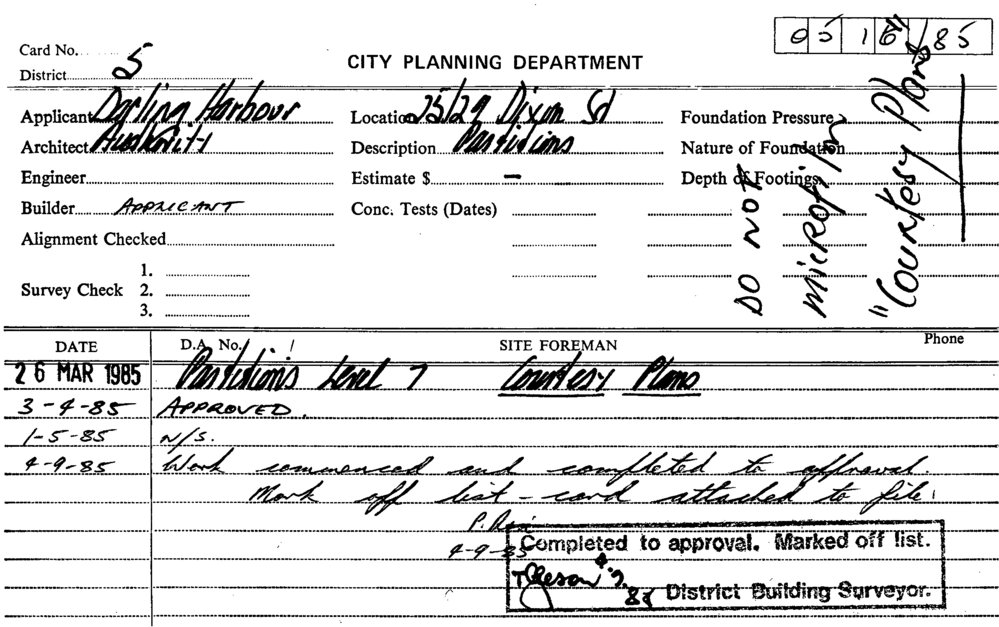 05 16 / 85
Card No.
District 5
CITY PLANNING DEPARTMENT
Applicant Darling Harbour
Location 25/29 Dixon St
Foundation Pressure
Architect Authority
Description Partitions
Nature of Foundation
Engineer
Estimate $ –
Depth of Footings
Builder APPLICANT
Conc. Tests (Dates)
Alignment Checked
1.
Survey Check 2.
3.
DO NOT
microfilm
"Courtesy Plans"
DATE D.A. No. / SITE FOREMAN Phone
26 MAR 1985 Partitions Level 7 Courtesy Plans
3-4-85 APPROVED.
1-5-85 N/S.
4-9-85 Work commenced and completed to approval.
Mark off list - card attached to file.
P.
4-9-85
Completed to approval. Marked off list.
4.9.
85 District Building Surveyor.